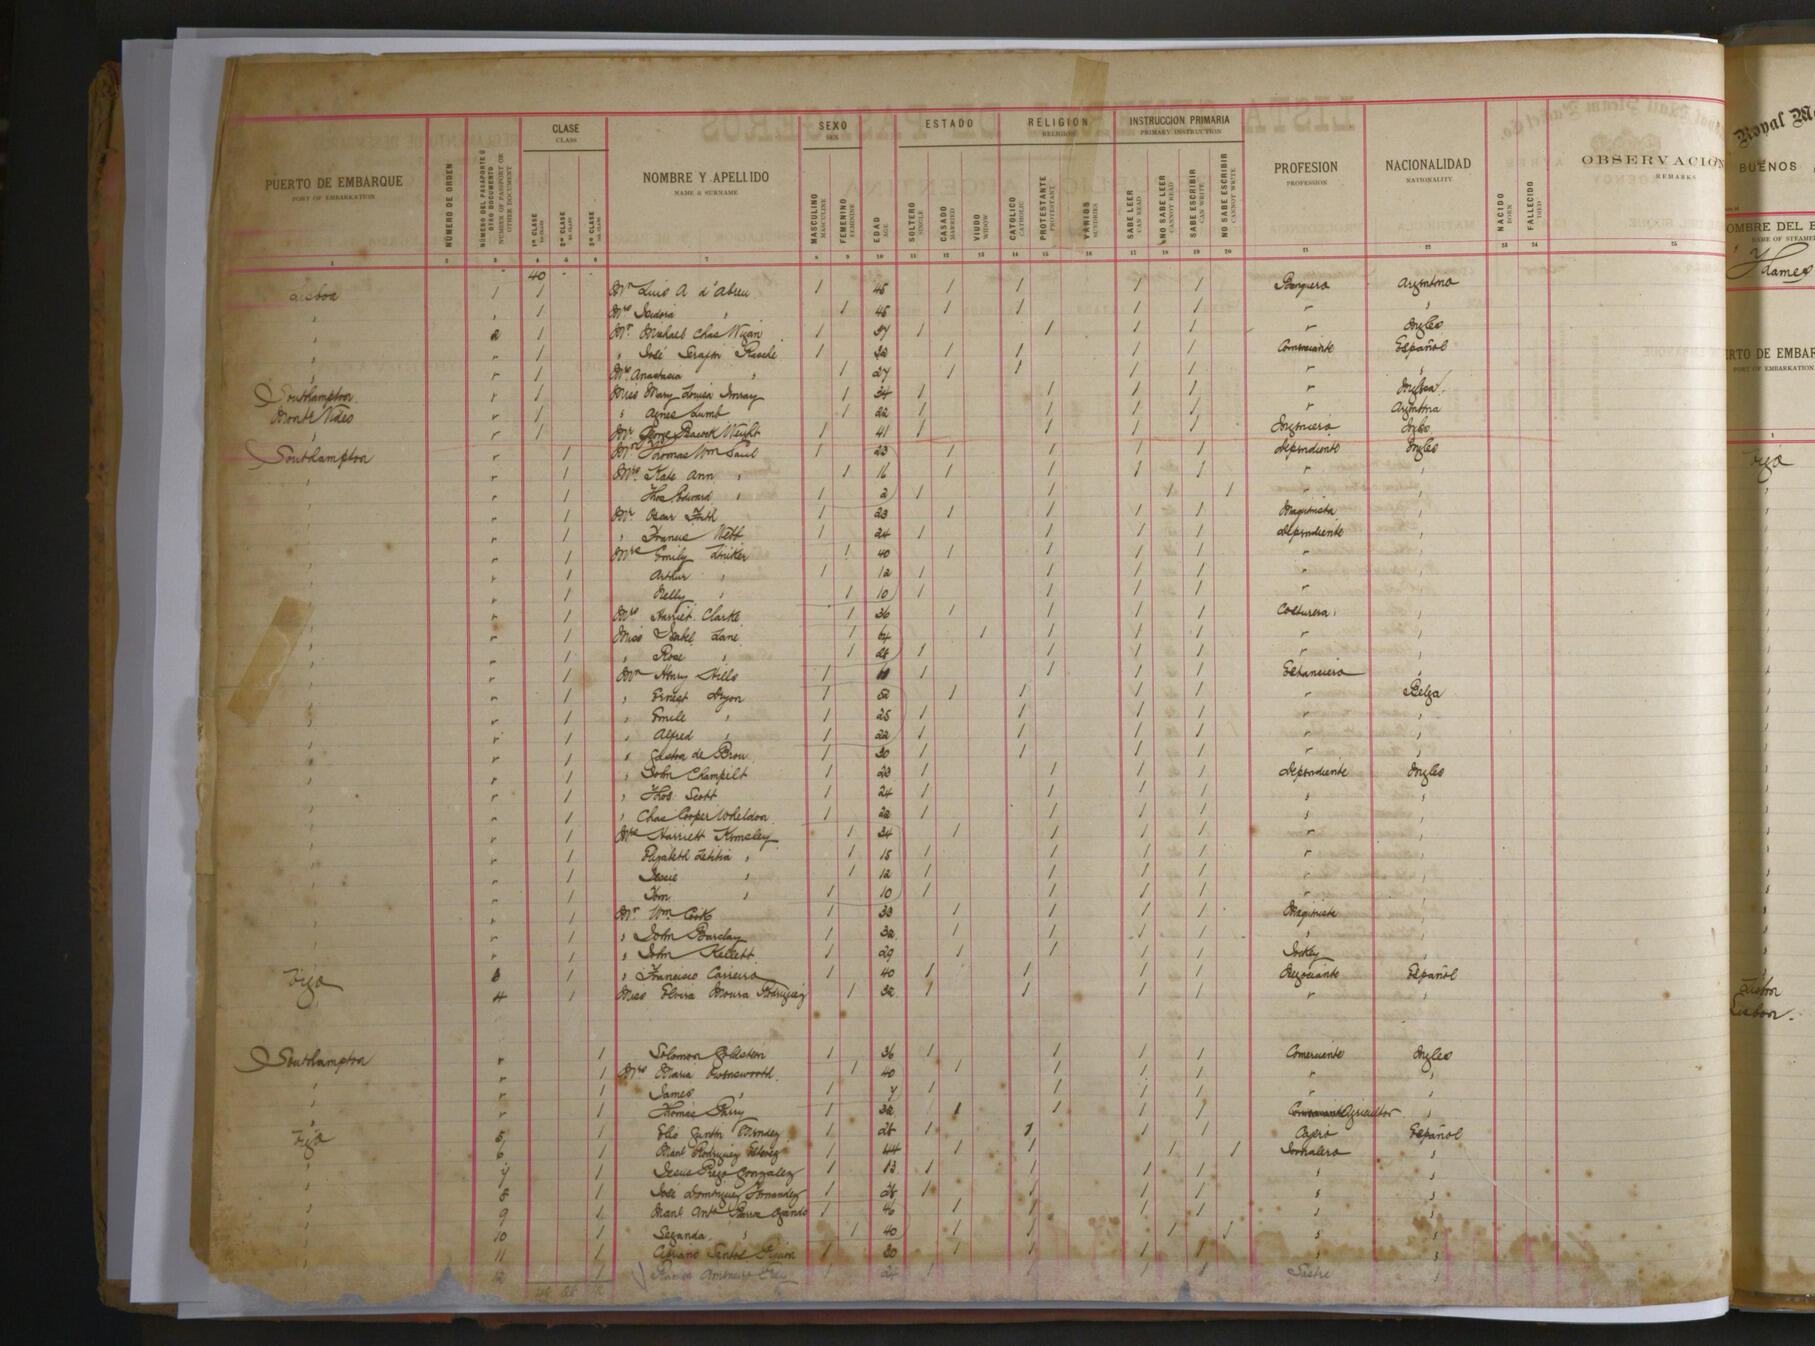 PUERTO DE EMBARQUE
PORT OF EMBARKATION
NÚMERO DE ORDEN
NÚMERO DEL PASAPORTE Ú OTRO DOCUMENTO
NUMBER OF PASSPORT OR OTHER DOCUMENT
CLASE
CLASS
1ª CLASE
2ª CLASE
3ª CLASE
NOMBRE Y APELLIDO
NAME & SURNAME
SEXO
SEX
MASCULINO
MASCULINE
FEMENINO
FEMININE
EDAD
AGE
ESTADO
SOLTERO
SINGLE
CASADO
MARRIED
VIUDO
WIDOW
RELIGION
RELIGION
CATOLICO
CATHOLIC
PROTESTANTE
PROTESTANT
VARIOS
SUNDRIES
INSTRUCCION PRIMARIA
PRIMARY INSTRUCTION
SABE LEER
CAN READ
NO SABE LEER
CANNOT READ
SABE ESCRIBIR
CAN WRITE
NO SABE ESCRIBIR
CANNOT WRITE
PROFESION
PROFESSION
NACIONALIDAD
NATIONALITY
NACIDO
BORN
FALLECIDO
DIED
OBSERVACION
REMARKS
1 2 3 4 5 6 7 8 9 10 11 12 13 14 15 16 17 18 19 20 21 22 23 24 25
40
Lisboa 1 1 Mr Luis A d'Abreu 1 45 1 1 1 1 Banquero Argentina
" " 1 Mrs Isidora " 1 45 1 1 1 1 " "
" 2 1 Mr Michael Chas 1 37 1 1 1 1 " Ingles
" " 1 " José 1 32 1 1 1 1 Comerciante Español
" " 1 Mrs Anastasia " 1 27 1 1 1 1 " "
Southampton " 1 Miss Mary Louisa Imray 1 34 1 1 1 1 " Inglesa
Monte Video " 1 " Agnes Lumb 1 22 1 1 1 1 " Argentina
" " 1 Mr Peacock Wright 1 41 1 1 1 1 Ingeniero Ingles
Southampton " 1 Mr Thomas Wm Saul 1 23 1 1 1 1 dependiente Ingles
" " 1 Mrs Kate Ann " 1 16 1 1 1 1 " "
" " 1 Thos Edward " 1 2 1 1 1 1 " "
" " 1 Mr Oscar 1 23 1 1 1 1 Maquinista "
" " 1 " Francis Webb 1 24 1 1 1 1 dependiente "
" " 1 Mrs Emily 1 40 1 1 1 1 " "
" " 1 Arthur " 1 12 1 1 1 1 " "
" " 1 Nelly " 1 10 1 1 1 1 " "
" " 1 Mrs Harriet Clarke 1 36 1 1 1 1 Costurera "
" " 1 Miss Isabel Lane 1 64 1 1 1 1 " "
" " 1 " Rose " 1 28 1 1 1 1 " "
" " 1 Mr Henry Hills 1 1 1 1 1 Estanciero "
" " 1 " Ernest Dryon 1 52 1 1 1 1 " Belga
" " 1 " Emile " 1 25 1 1 1 1 " "
" " 1 " Alfred " 1 22 1 1 1 1 " "
" " 1 " Gaston de Brou 1 30 1 1 1 1 " "
" " 1 " John 1 23 1 1 1 1 dependiente Ingles
" " 1 " Thos Scott 1 24 1 1 1 1 " "
" " 1 " Chas Cooper Wheldon 1 22 1 1 1 1 " "
" " 1 Mrs Harriett Kemsley 1 34 1 1 1 1 " "
" " 1 Elizabeth Letitia " 1 15 1 1 1 1 " "
" " 1 Jessie " 1 12 1 1 1 1 " "
" " 1 Tom " 1 10 1 1 1 1 " "
" " 1 Mr Wm Cook 1 33 1 1 1 1 Maquinista "
" " 1 " John Barclay 1 32 1 1 1 1 " "
" " 1 " John Kellett 1 29 1 1 1 1 Jockey "
Vigo 3 1 " Francisco Carreira 1 40 1 1 1 1 Negociante Español
" 4 1 Miss Elvira Moura Rodriguez 1 32 1 1 1 1 " "
Southampton " 1 Solomon Goldstein 1 36 1 1 1 1 Comerciante Ingles
" " 1 Mrs Maria 1 40 1 1 1 1 " "
" " 1 James " 1 7 1 1 1 1 " "
" " 1 Thomas Parry 1 32 1 1 1 1 Comerciante Agricultor "
Vigo 5 1 Elio 1 28 1 1 1 1 Español
" 6 1 Manl Rodriguez Estevez 1 44 1 1 1 1 Jornalero "
" 7 1 Jesus Gonzalez 1 13 1 1 1 1 " "
" 8 1 José Dominguez Fernandez 1 28 1 1 1 1 " "
" 9 1 Manl Anto 1 46 1 1 1 1 " "
" 10 1 Segunda " 1 40 1 1 1 1 " "
" 11 1 Santos 1 30 1 1 1 1 " "
" 12 1 Ramon 1 24 1 1 1 1 Sastre "
Royal M
BUENOS
OMBRE DEL B
NAME OF STEAMER
Thames
ERTO DE EMBAR
PORT OF EMBARKATION
1
Vigo
Lisbon
Lisbon